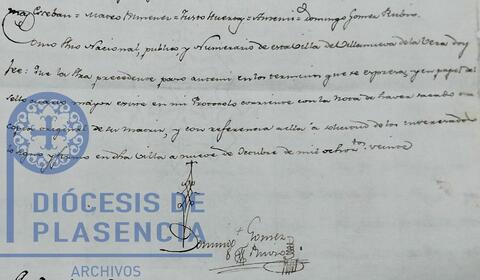 mas Esteban = Mateo Ximenez = Justo Huertas = Antemi: Domingo Gomez Rubio.
Como Ssno Nacional, publico y Numerario de esta Villa de Villanueva de la Vera doy
fee: Que la Ssra precedente paso antemi en los terminos que se expresa, y en papel del
sello quarto mayor escire en mi Protocolo corriente con la Nota de haver sacado
copia original de su Matriz, y con referencia a ella a solicitud de los interesados
lo signo y firmo en dha Villa a nueve de Octubre de mil ochotos. veinte
Domingo Gomez
Rubio
DIÓCESIS DE
PLASENCIA
ARCHIVOS